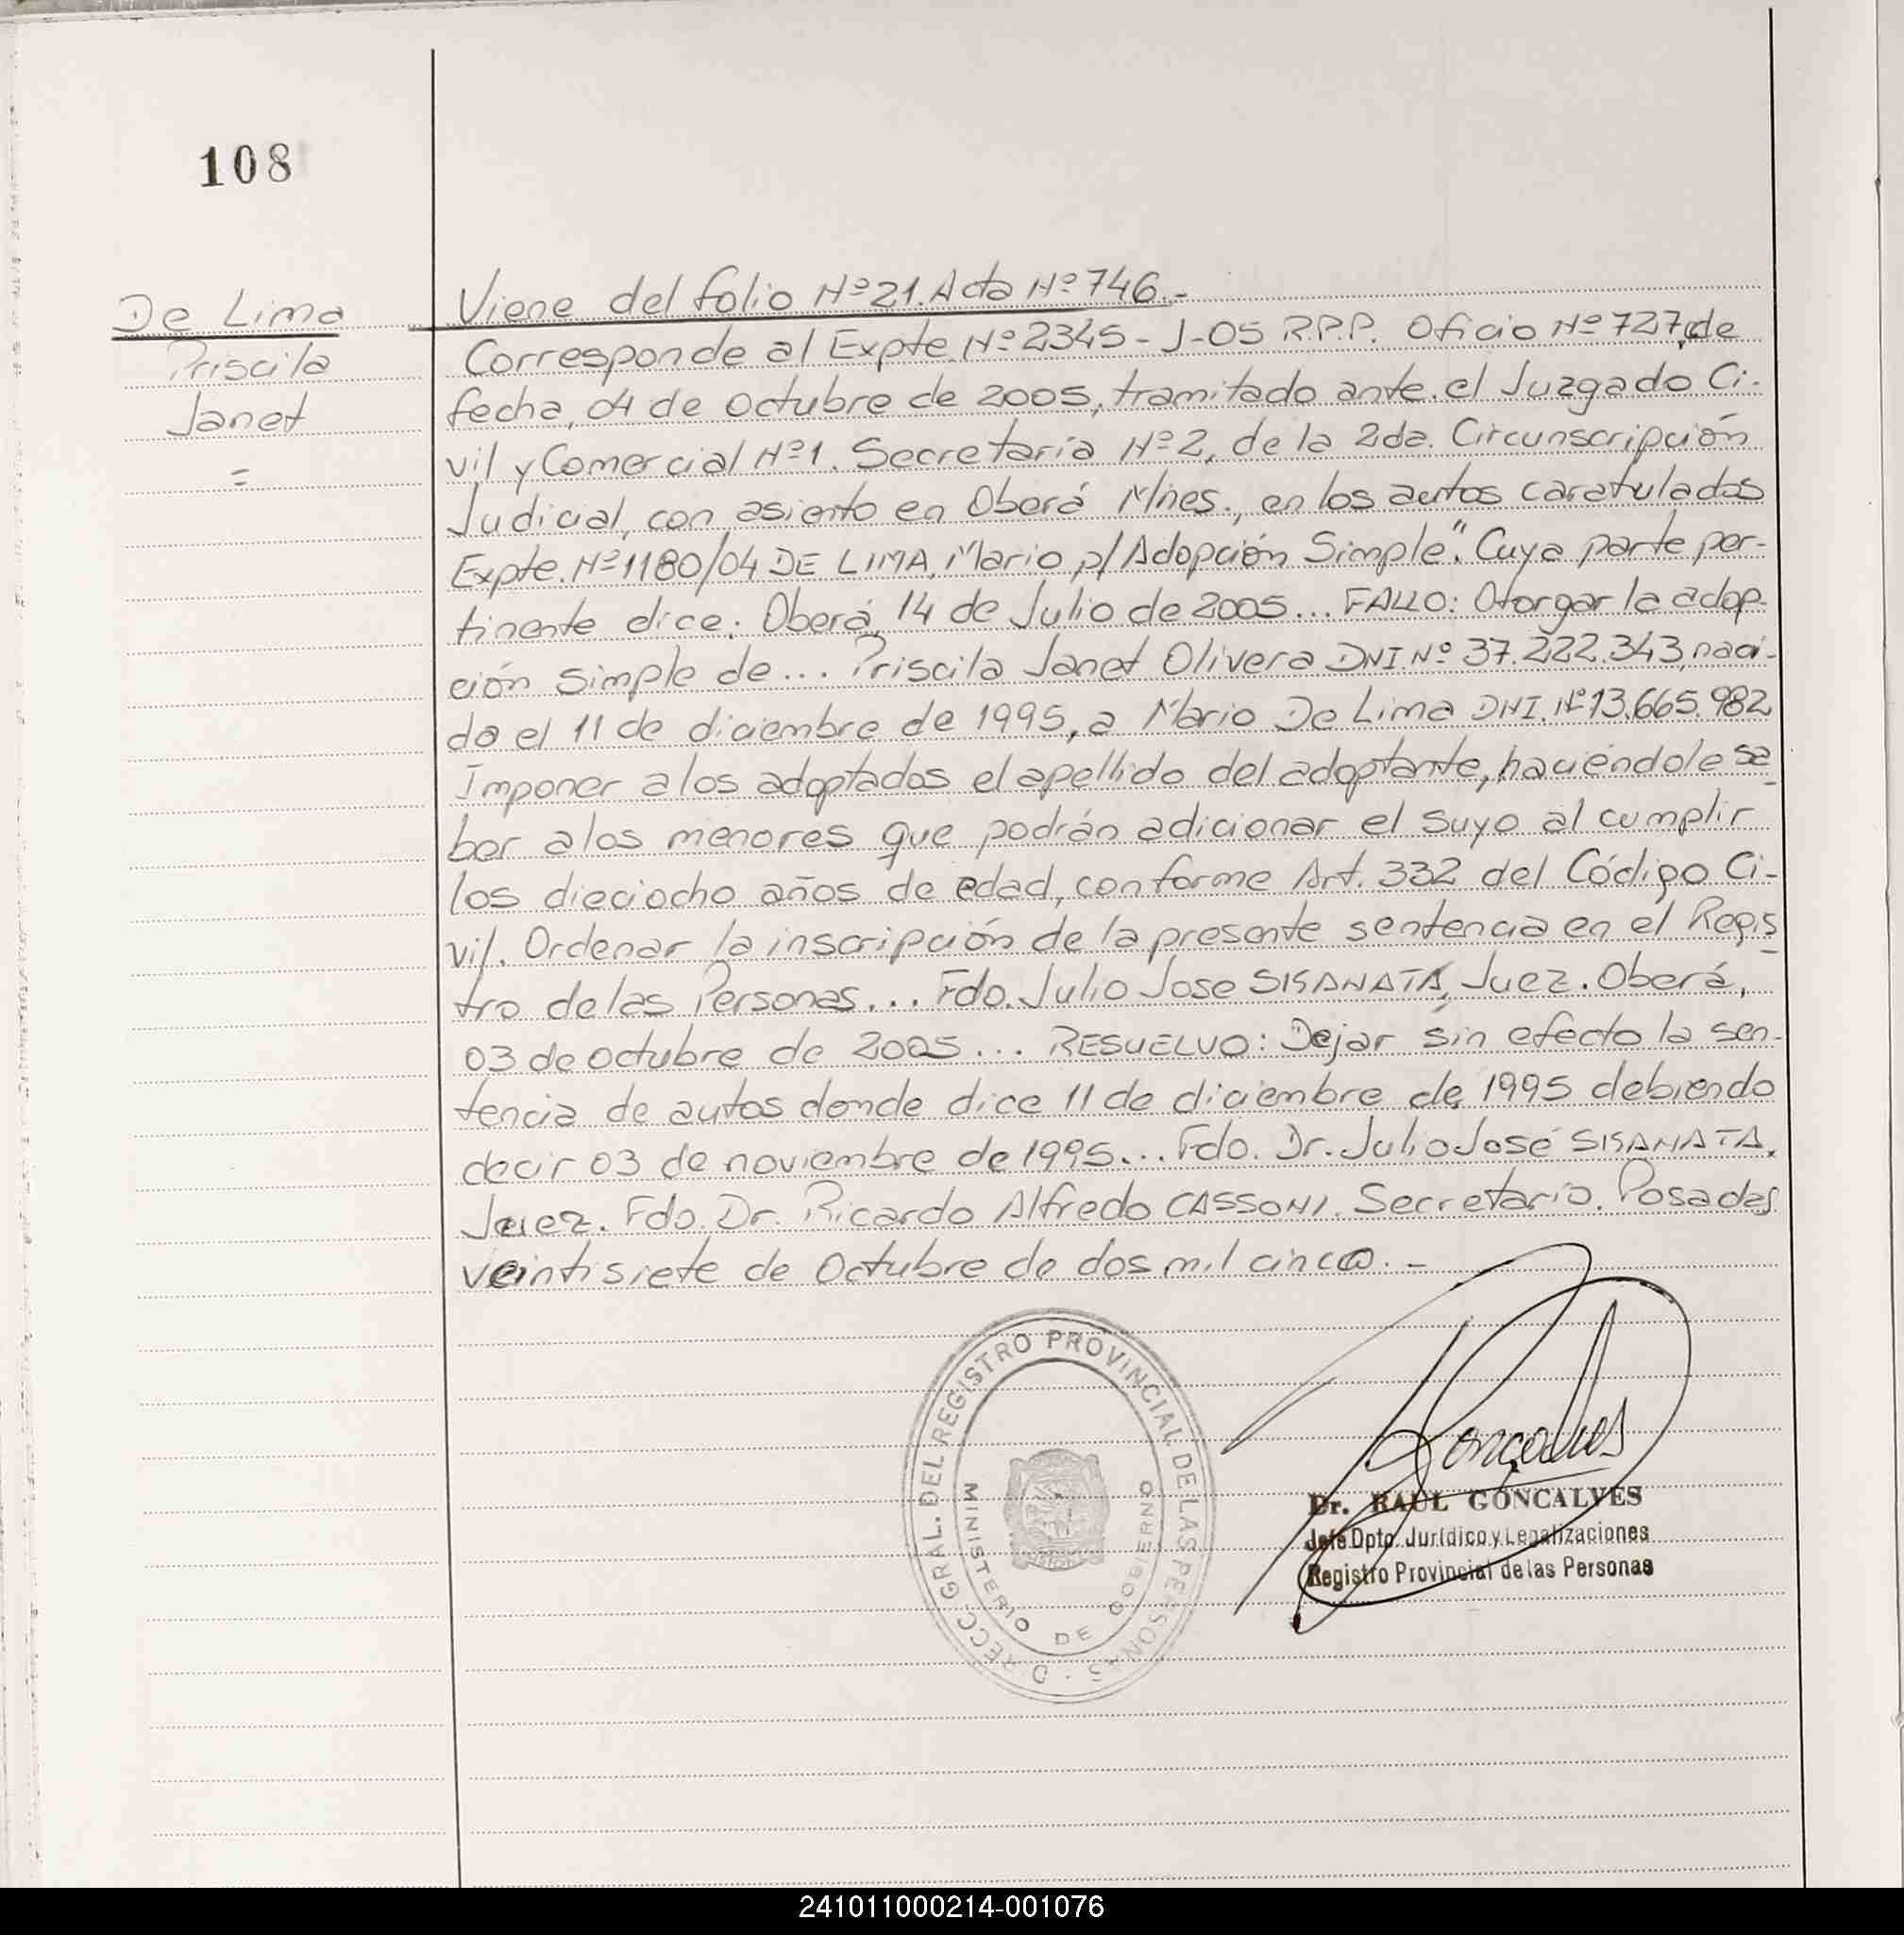 108
De Lima
Priscila
Janet
=
Viene del folio Nº 21. Acta Nº 746.-
Corresponde al Expte. Nº 2345 - J-05 R.P.P. Oficio Nº 727, de
fecha, 04 de octubre de 2005, tramitado ante el Juzgado Ci-
vil y Comercial Nº 1. Secretaría Nº 2, de la 2da. Circunscripción
Judicial, con asiento en Oberá Mnes., en los autos caratulados
Expte. Nº 1180/04 DE LIMA, Mario p/Adopción Simple". Cuya parte per-
tinente dice: Oberá, 14 de Julio de 2005... FALLO: Otorgar la adop-
ción simple de... Priscila Janet Olivera DNI. Nº 37.222.343, naci-
da el 11 de diciembre de 1995, a Mario De Lima DNI. Nº 13.665.982
Imponer a los adoptados el apellido del adoptante, haciéndole sa-
ber a los menores que podrán adicionar el suyo al cumplir
los dieciocho años de edad, conforme Art. 332 del Código Ci-
vil. Ordenar la inscripción de la presente sentencia en el Regis-
tro de las Personas... Fdo. Julio Jose SISANATA, Juez. Oberá,
03 de octubre de 2005... RESUELVO: Dejar sin efecto la sen-
tencia de autos donde dice 11 de diciembre de 1995 debiendo
decir 03 de noviembre de 1995... Fdo. Dr. Julio José SISANATA.
Juez. Fdo. Dr. Ricardo Alfredo CASSONI. Secretario. Posadas
veintisiete de Octubre de dos mil cinco.-
DIRECC. GRAL. DEL REGISTRO PROVINCIAL DE LAS PERSONAS
MINISTERIO DE GOBIERNO
Goncalves
Dr. RAUL GONCALVES
Jefe Dpto. Jurídico y Legalizaciones
Registro Provincial de las Personas
241011000214-001076